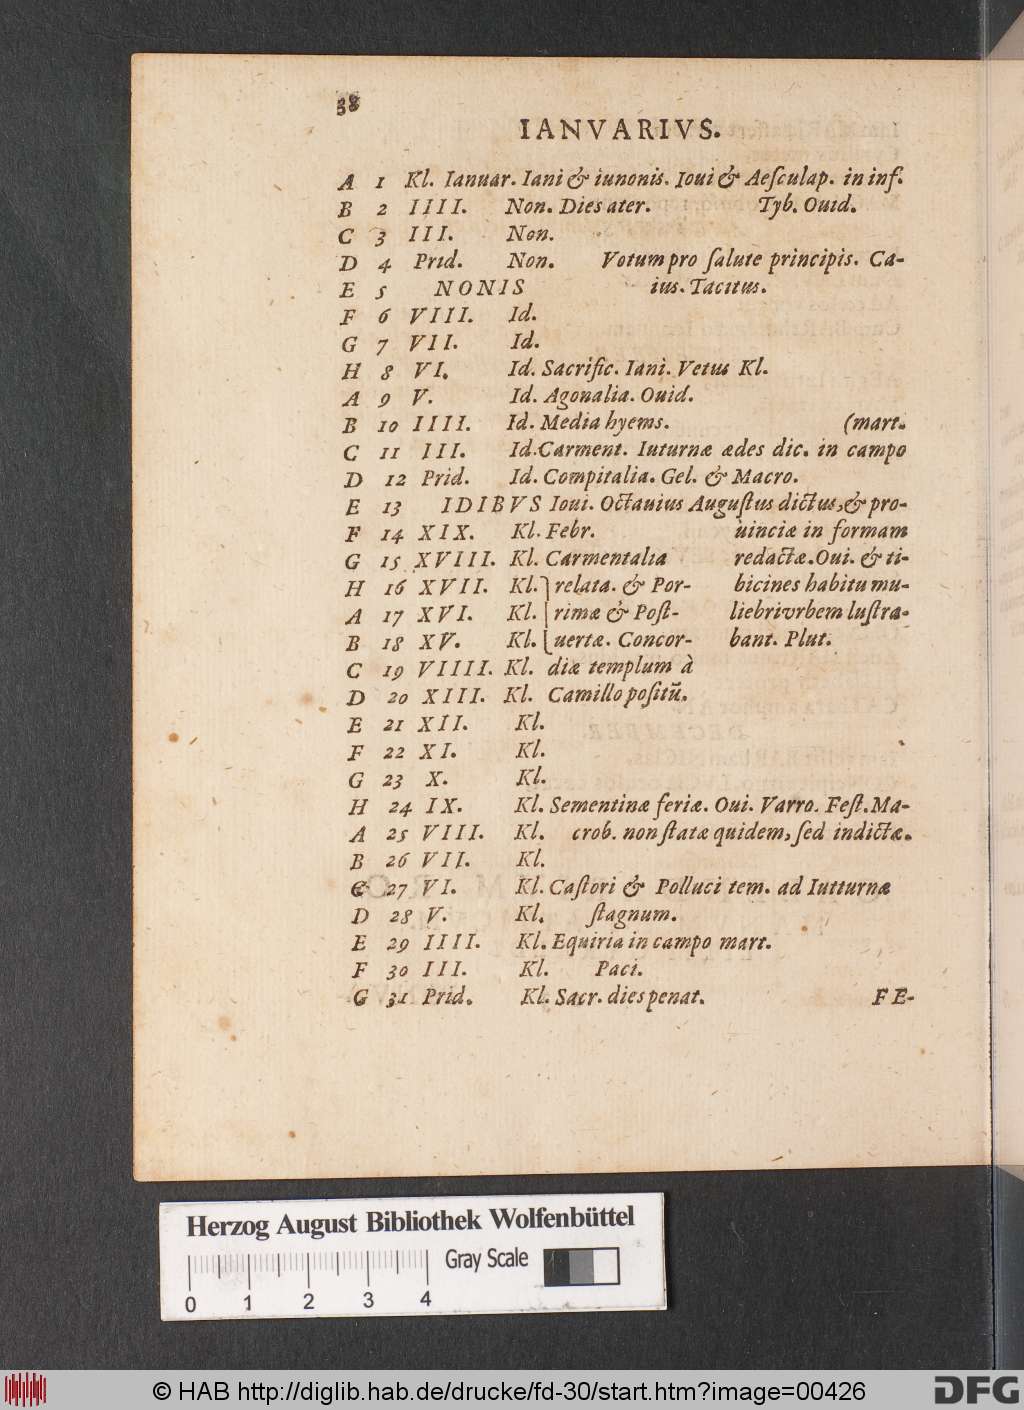 38
IANVARIVS.
A 1 Kl. Ianuar. Iani & iunonis. Ioui & Aeſculap. in inſ.
B 2 IIII. Non. Dies ater. Tyb. Ouid.
C 3 III. Non.
D 4 Prid. Non. Votum pro ſalute principis. Ca-
E 5 NONIS ius. Tacitus.
F 6 VIII. Id.
G 7 VII. Id.
H 8 VI. Id. Sacrific. Iani. Vetus Kl.
A 9 V. Id. Agonalia. Ouid.
B 10 IIII. Id. Media hyems. (mart.
C 11 III. Id. Carment. Iuturnæ ædes dic. in campo
D 12 Prid. Id. Compitalia. Gel. & Macro.
E 13 IDIBVS Ioui. Octauius Auguſtus dictus, & pro-
F 14 XIX. Kl. Febr. uinciæ in formam
G 15 XVIII. Kl. Carmentalia redactæ. Oui. & ti-
H 16 XVII. Kl. relata. & Por- bicines habitu mu-
A 17 XVI. Kl. rimæ & Poſt- liebri vrbem luſtra-
B 18 XV. Kl. uertæ. Concor- bant. Plut.
C 19 VIIII. Kl. diæ templum à
D 20 XIII. Kl. Camillo poſitũ.
E 21 XII. Kl.
F 22 XI. Kl.
G 23 X. Kl.
H 24 IX. Kl. Sementinæ feriæ. Oui. Varro. Feſt. Ma-
A 25 VIII. Kl. crob. non ſtatæ quidem, ſed indictæ.
B 26 VII. Kl.
C 27 VI. Kl. Caſtori & Polluci tem. ad Iutturnæ
D 28 V. Kl. ſtagnum.
E 29 IIII. Kl. Equiria in campo mart.
F 30 III. Kl. Paci.
G 31 Prid. Kl. Sacr. dies penat. FE-
Herzog August Bibliothek Wolfenbüttel
Gray Scale
0 1 2 3 4
© HAB http://diglib.hab.de/drucke/fd-30/start.htm?image=00426
DFG